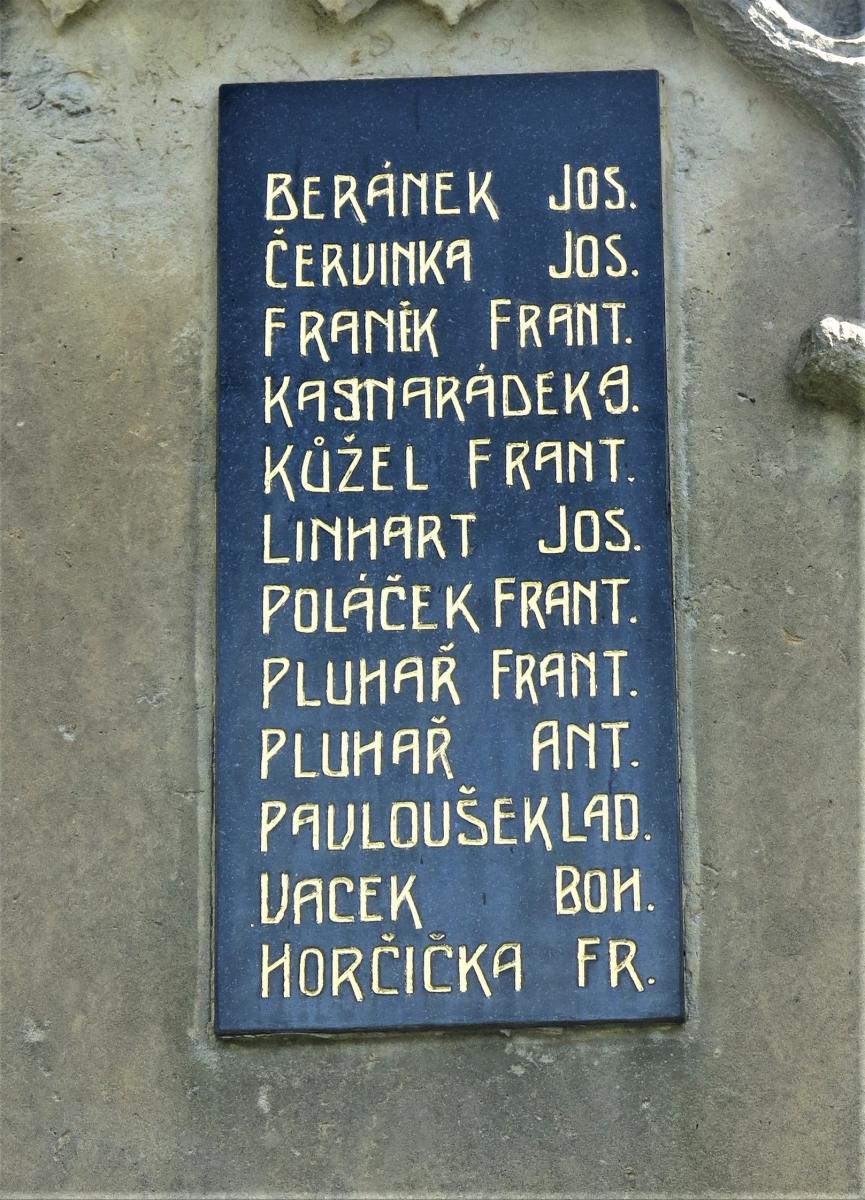 BERÁNEK JOS.
ČERVINKA JOS.
FRANĚK FRANT.
KŮŽEL FRANT.
LINHART JOS.
POLÁČEK FRANT.
PLUHAŘ FRANT.
PLUHAŘ ANT.
PAVLOUŠEK LAD.
VACEK BOH.
HORČIČKA FR.